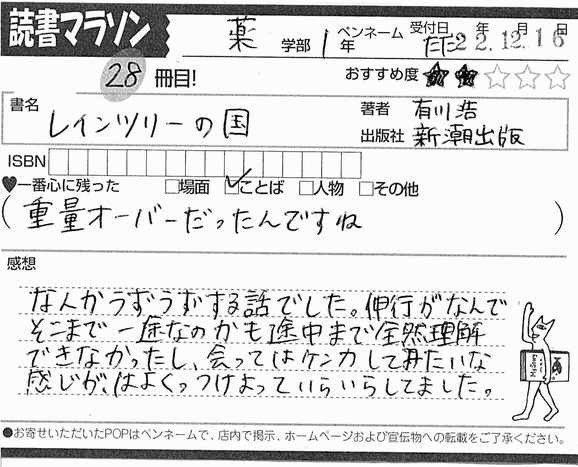 読書マラソン
薬 学部 1年 ペンネーム 受付日 22年12月16日
28冊目! おすすめ度 ★★☆☆☆
書名 レインツリーの国
著者 有川浩
出版社 新潮出版
ISBN
♥一番心に残った □場面 ☑ことば □人物 □その他
(重量オーバーだったんですね)
感想
なんかうずうずする話でした。伸行がなんで
そこまで一途なのかも途中まで全然理解
できなかったし、会ってはケンカしてみたいな
感じが、はよくっつけよっていらいらしてました。
●お寄せいただいたPOPはペンネームで、店内で掲示、ホームページおよび宣伝物への転載をご了承ください。